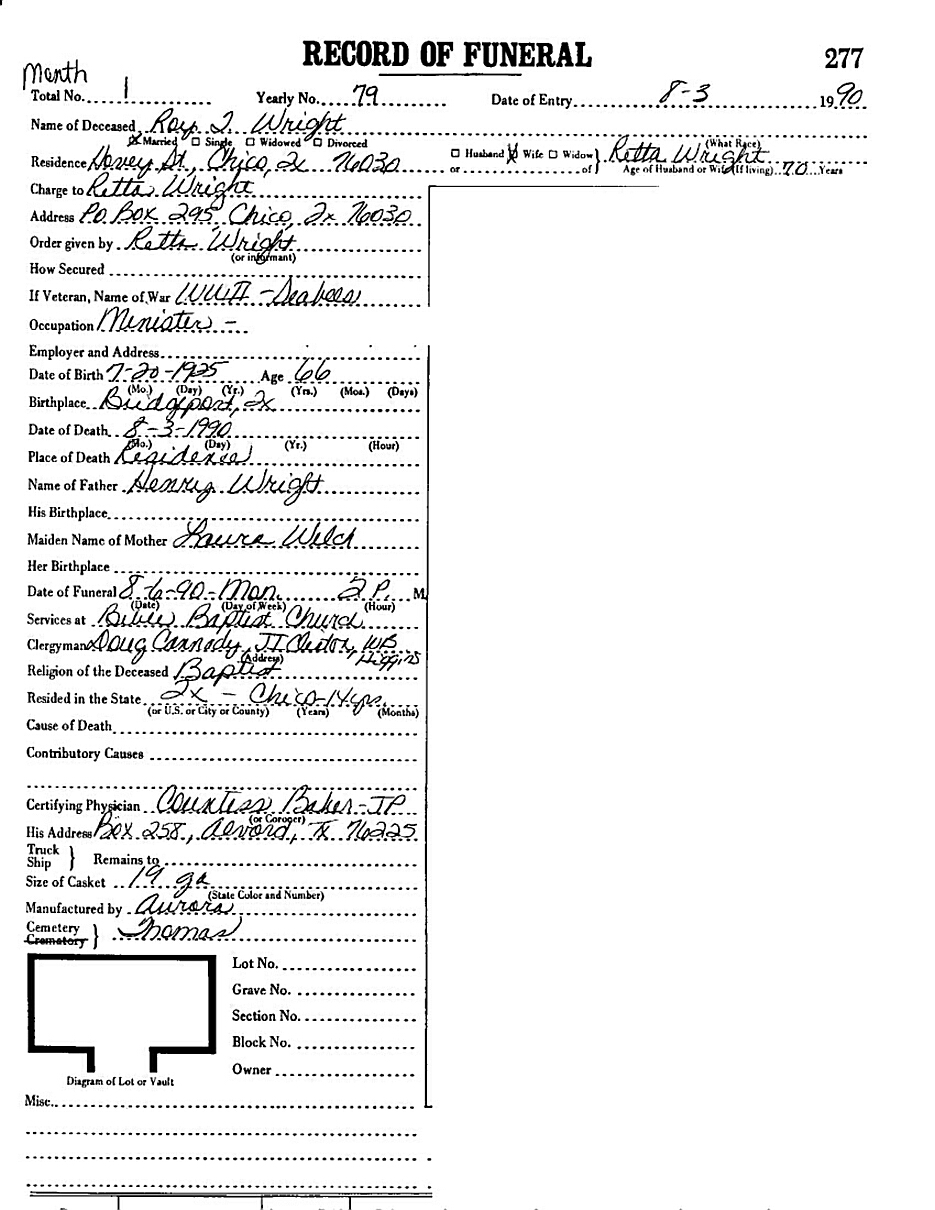 RECORD OF FUNERAL 277
Month
Total No. 1 Yearly No. 79 Date of Entry 8-3 1990
Name of Deceased Roy J. Wright
☒ Married ☐ Single ☐ Widowed ☐ Divorced (What Race)
Residence Hovey St, Chico, Tx 76030 ☐ Husband ☒ Wife ☐ Widow } Retta Wright
or of Age of Husband or Wife (If living) 70 Years
Charge to Retta Wright
Address P.O. Box 295, Chico, Tx 76030
Order given by Retta Wright
(or informant)
How Secured
If Veteran, Name of War WWII - Seabees
Occupation Minister -
Employer and Address
Date of Birth 7-20-1925 Age 66
(Mo.) (Day) (Yr.) (Yrs.) (Mos.) (Days)
Birthplace Bridgeport, Tx
Date of Death 8-3-1990
(Mo.) (Day) (Yr.) (Hour)
Place of Death Residence
Name of Father Henry Wright
His Birthplace
Maiden Name of Mother Laura Welch
Her Birthplace
Date of Funeral 8-6-90-Mon. 2 P. M
(Date) (Day of Week) (Hour)
Services at Bible Baptist Church
Clergyman Doug Cannady, JT WB
(Address) Higgins
Religion of the Deceased Baptist
Resided in the State Tx - Chico-14yrs.
(or U.S. or City or County) (Years) (Months)
Cause of Death
Contributory Causes
Certifying Physician Countess Baker-JP
(or Coroner)
His Address Box 258, Alvord, Tx 76225
Truck
Ship } Remains to
Size of Casket 19 ga
(State Color and Number)
Manufactured by Aurora
Cemetery
Crematory } Thomas
Lot No.
Grave No.
Section No.
Block No.
Owner
Diagram of Lot or Vault
Misc.